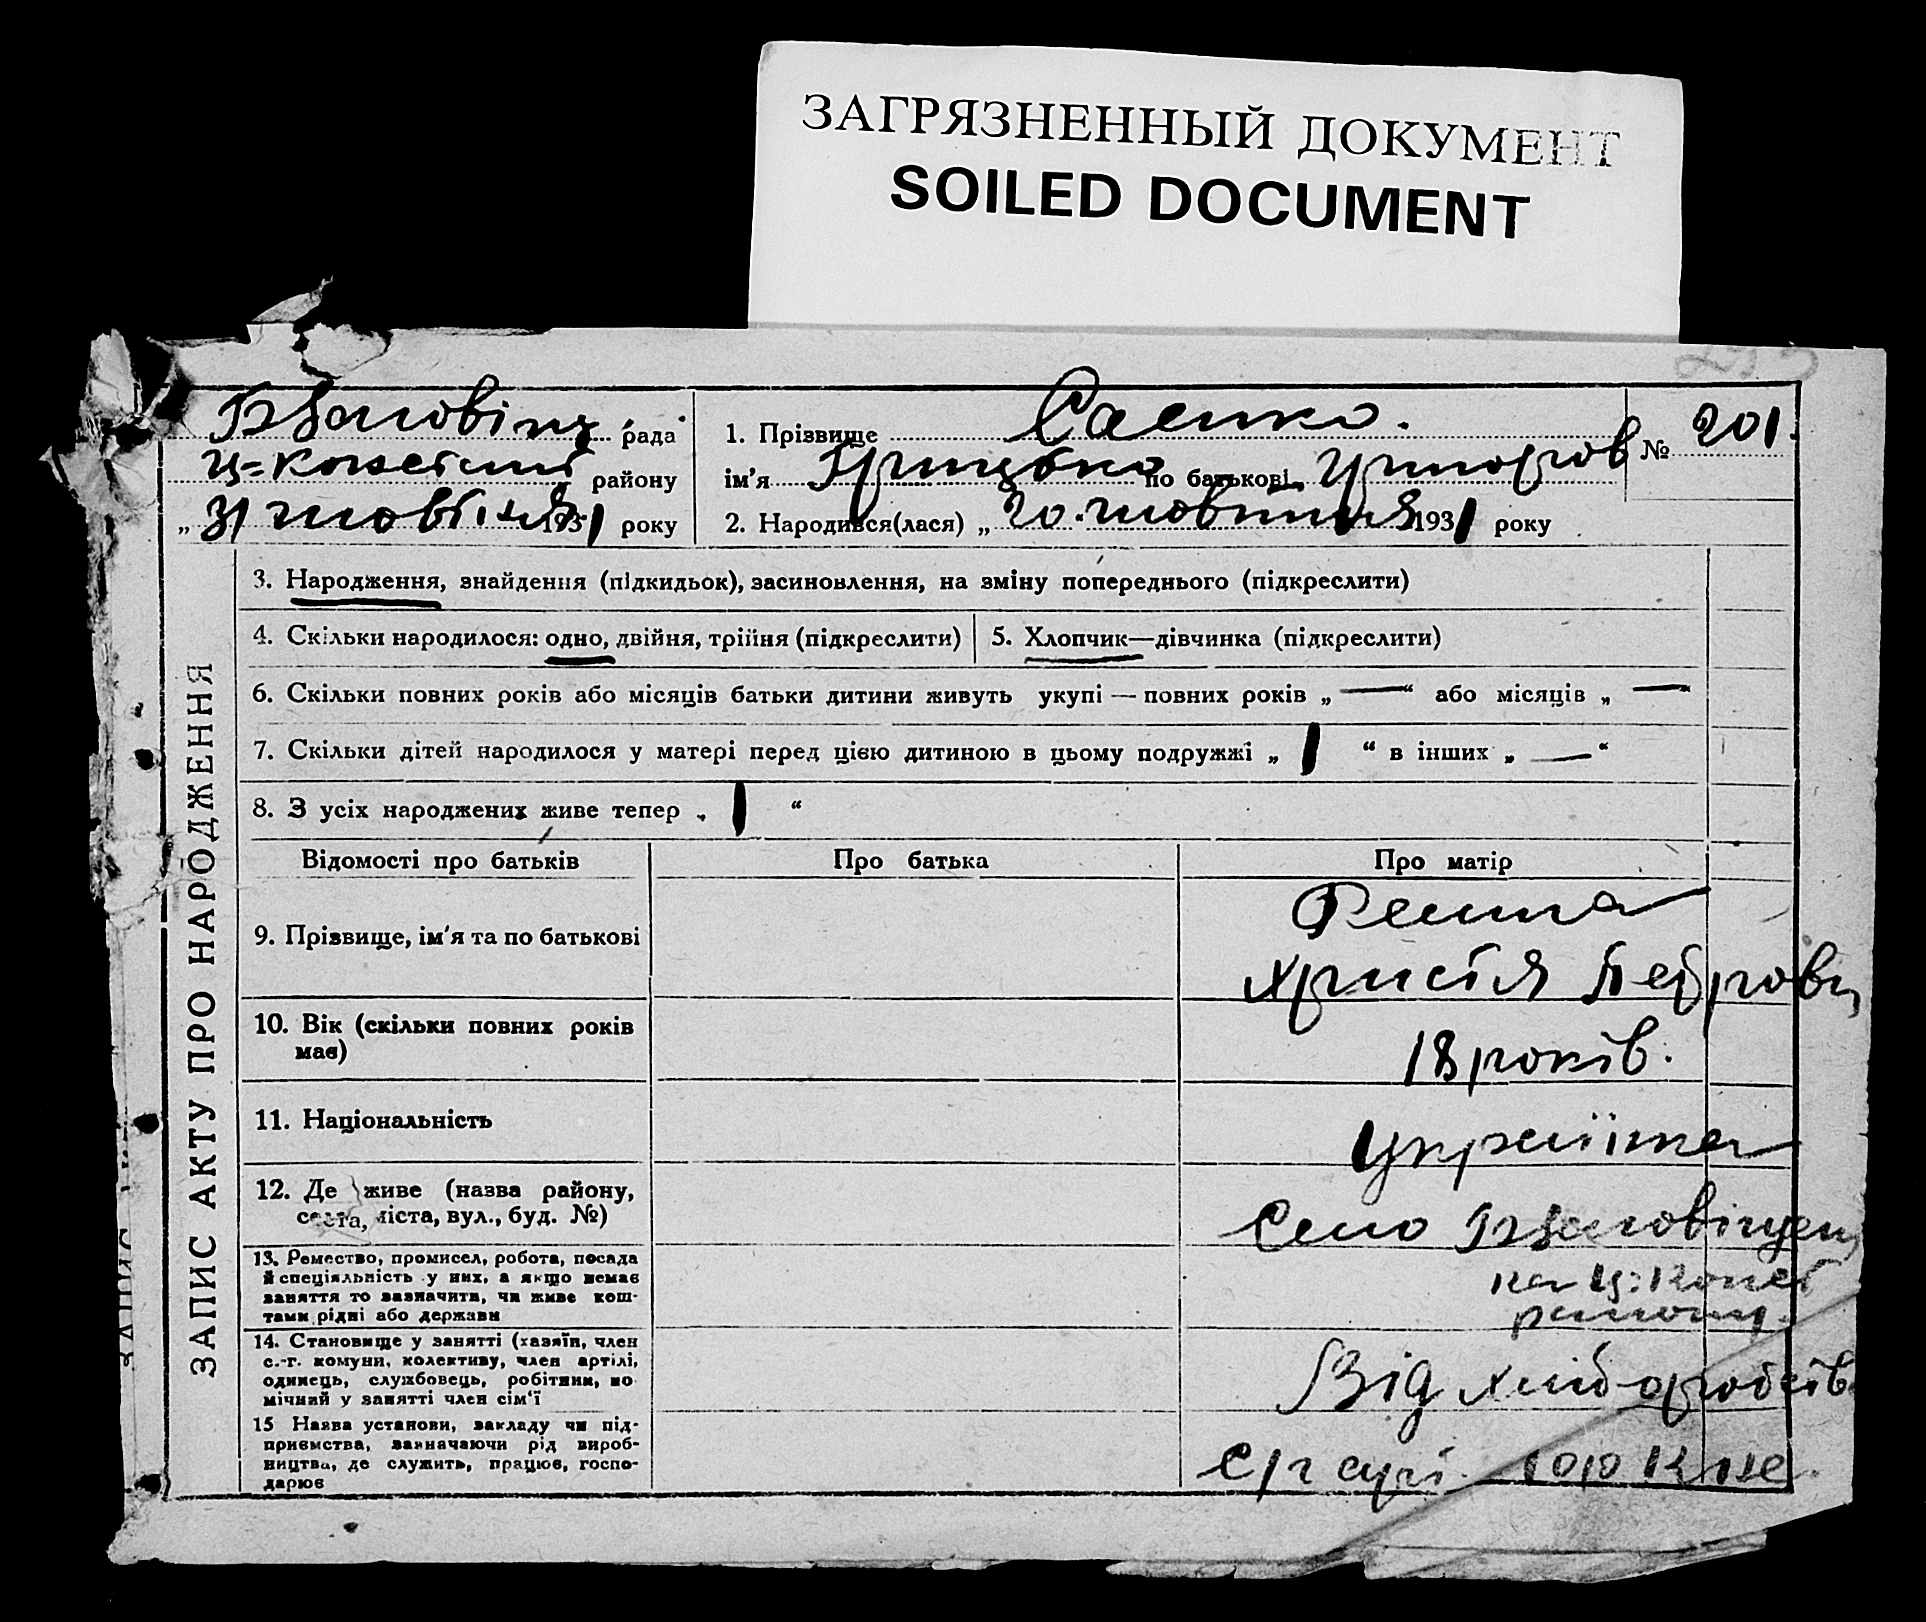 ЗАГРЯЗНЕННЫЙ ДОКУМЕНТ
SOILED DOCUMENT
рада
району
„ 31 жовтня 1931 року
1. Прізвище Саєнко.
ім'я Грицько по батькові
2. Народився(лася) „ 20. жовтня 1931 року
№ 201.
ЗАПИС АКТУ ПРО НАРОДЖЕННЯ
3. Народження, знайдення (підкидьок), засиновлення, на зміну попереднього (підкреслити)
4. Скільки народилося: одно, двійня, трійня (підкреслити)
5. Хлопчик—дівчинка (підкреслити)
6. Скільки повних років або місяців батьки дитини живуть укупі — повних років „ — “ або місяців „ — “
7. Скільки дітей народилося у матері перед цією дитиною в цьому подружжі „ 1 “ в інших „ — “
8. З усіх народжених живе тепер „ 1 “
Відомості про батьків
Про батька
Про матір
9. Прізвище, ім'я та по батькові
Христя Петровн
10. Вік (скільки повних років
має)
18 років.
11. Національність
Українка
12. Де живе (назва району,
села, міста, вул., буд. №)
Село
13. Ремество, промисел, робота, посада
й спеціяльність у них, а якщо немає
заняття то зазначити, чи живе кош-
тами рідні або держави
14. Становище у занятті (хазяїн, член
с.-г. комуни, колективу, член артілі,
одинець, службовець, робітник, по
мічний у занятті член сім'ї
Від хліборобів
15 Назва установи, закладу чи під-
приємства, зазначаючи рід вироб-
ництва, де служить, працює, госпо-
дарює